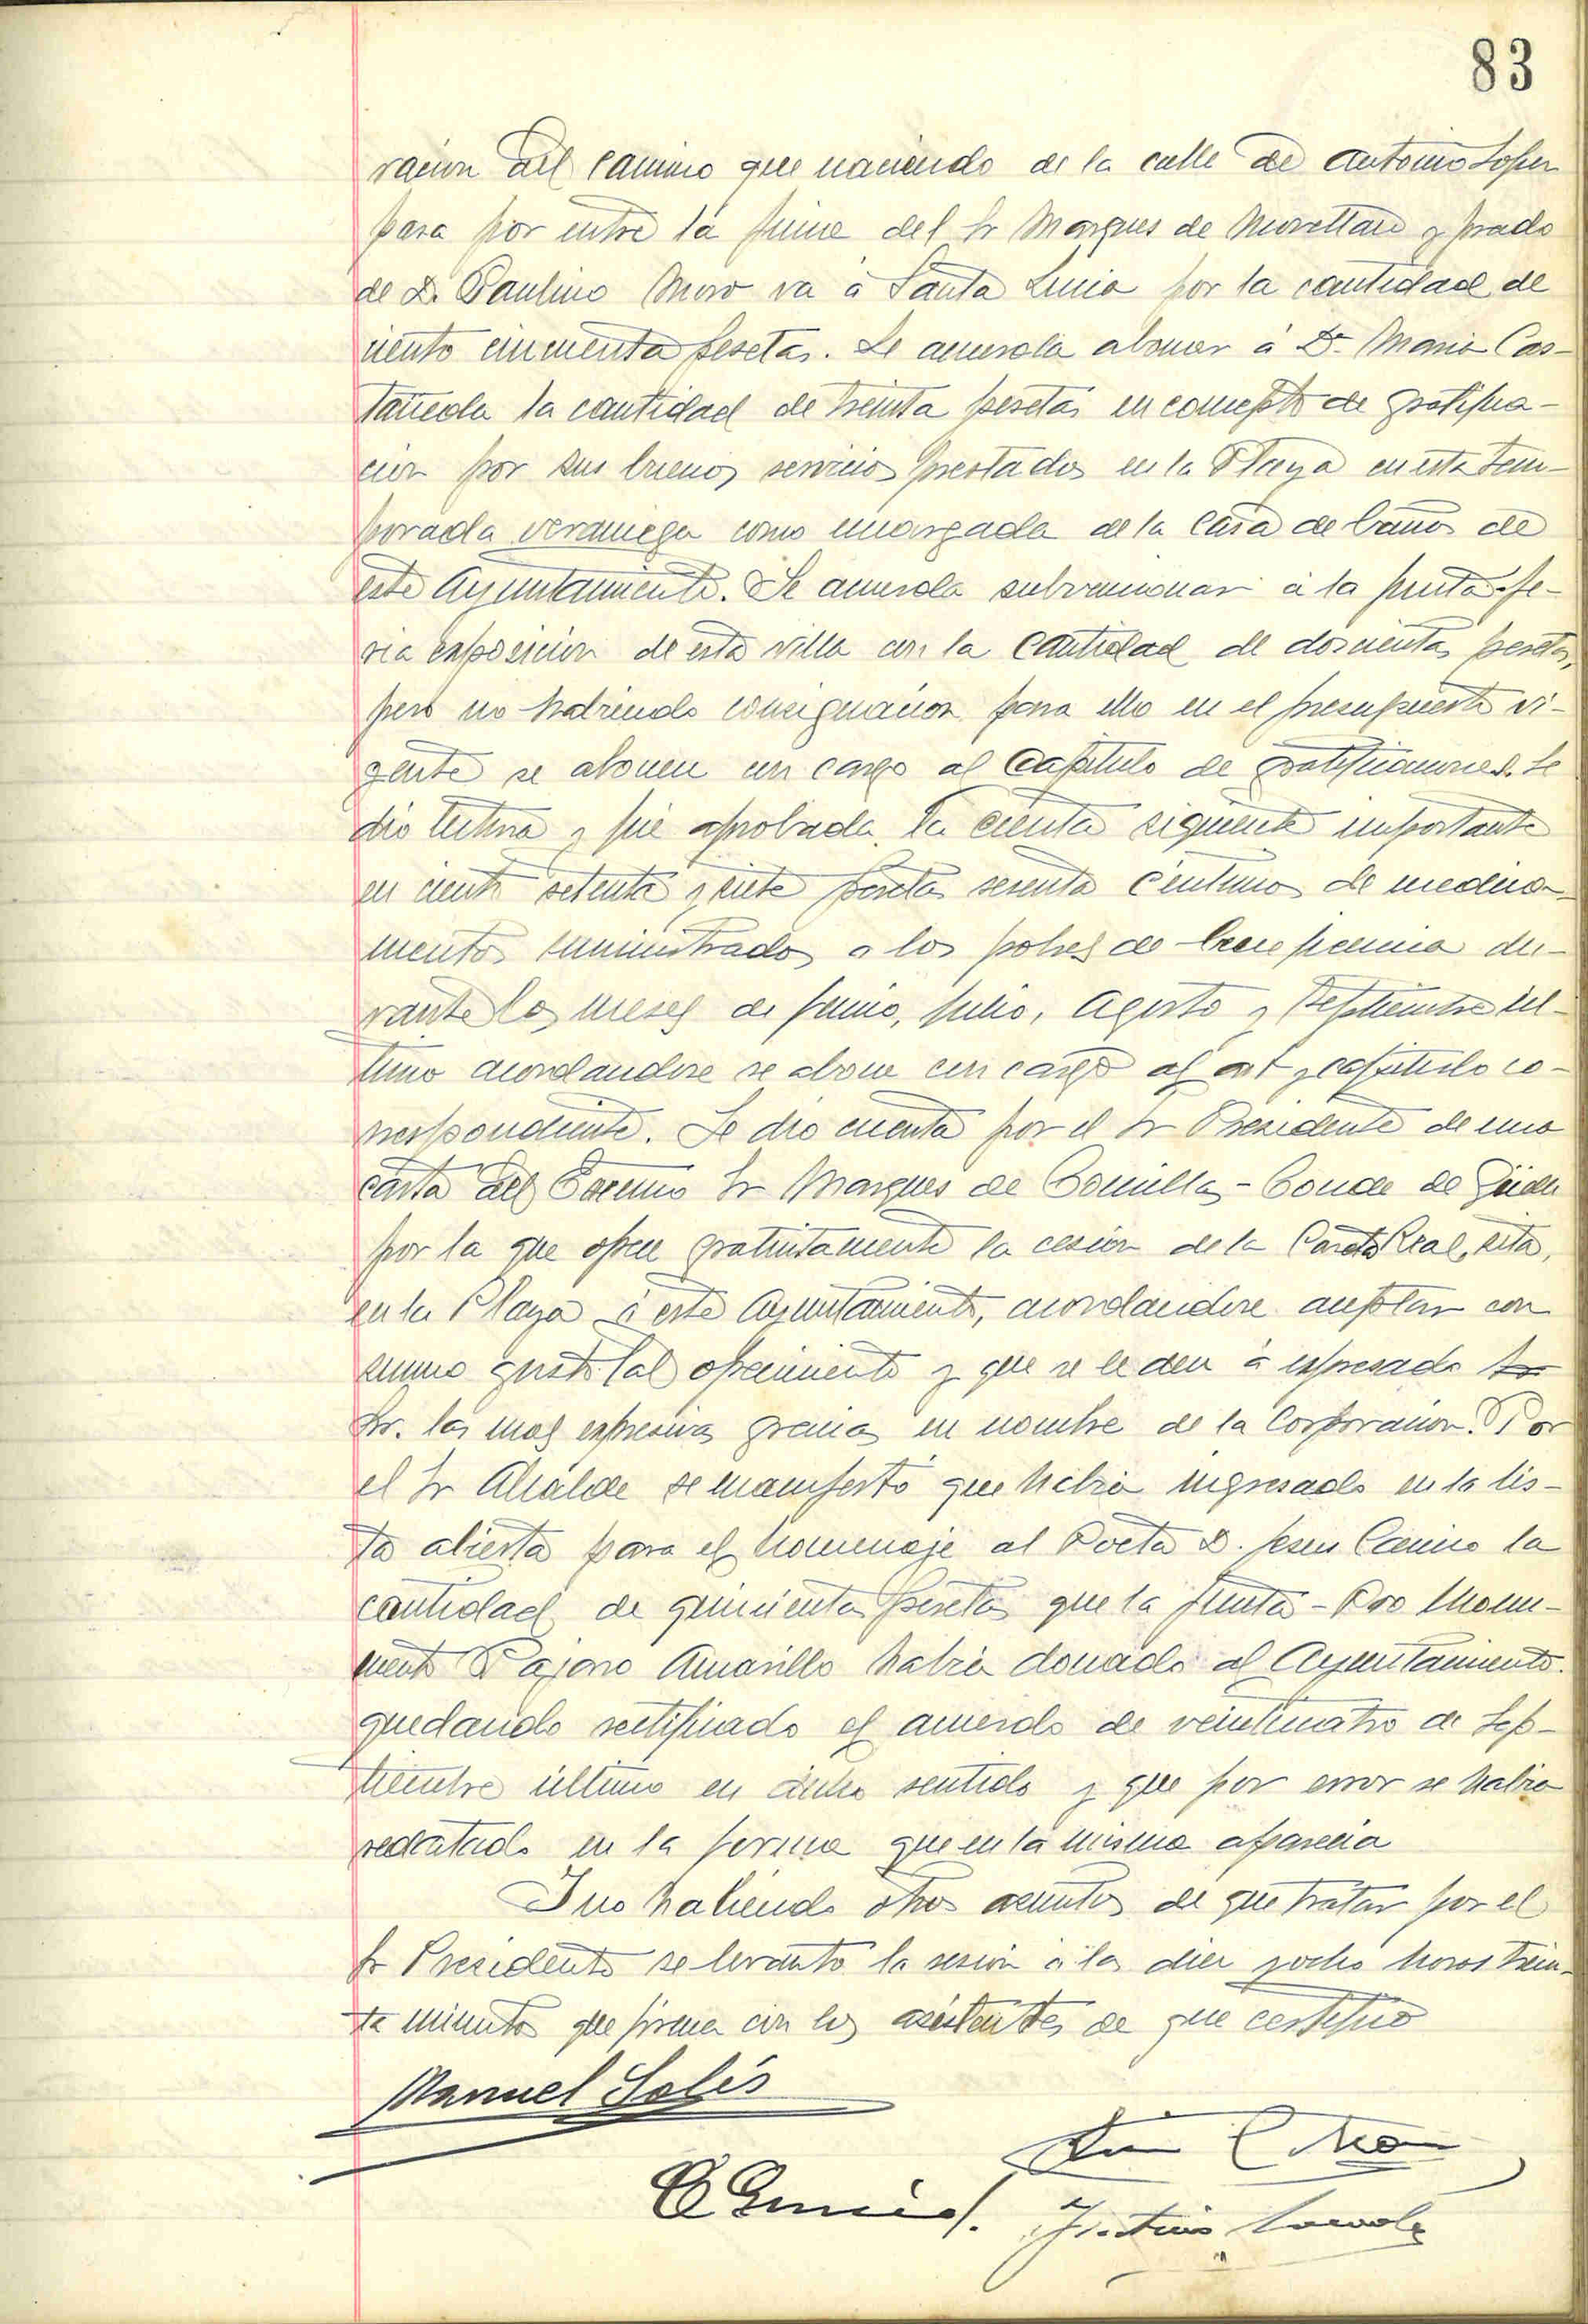 83
racion del camino que naciendo de la calle de Antonio Lopez
pasa por entre la finca del Sr Marques de Movellan y prado
de D. Paulino Moro va á Santa Lucia por la cantidad de
ciento cincuenta pesetas. Se acuerda abonar á Dª Maria Cas-
tañeda la cantidad de treinta pesetas en concepto de gratifica-
cion por sus buenos servicios prestados en la Playa en esta tem-
porada veraniega como encargada de la Casa de baños de
este Ayuntamiento. Se acuerda subvencionar á la junta fe-
ria exposicion de esta villa con la cantidad de doscientas pesetas,
pero no habiendo consignacion para ello en el presupuesto vi-
gente se abonen con cargo al Capitulo de gratificaciones. Se
dio lectura y fué aprobada la cuenta siguiente importante
en ciento setenta y siete pesetas sesenta centimos de medica-
mentos suministrados a los pobres de beneficencia du-
rante los meses de junio, julio, Agosto y Septiembre úl-
timo acordandose se abone con cargo al art y capitulo co-
rrespondiente. Se dio cuenta por el Sr Presidente de una
carta del Excmo Sr Marques de Comillas - Conde de Güell
por la que ofrece gratuitamente la cesion de la Caseta Real, sita,
en la Playa á este Ayuntamiento, acordandose aceptar con
sumo gusto tal ofrecimiento y que se le den á expresado Sr
Sr. las mas expresivas gracias en nombre de la Corporacion. Por
el Sr Alcalde se manifestó que habia ingresado en la lis-
ta abierta para el homenaje al Poeta D. Jesus Cancio la
cantidad de quinientas pesetas que la Junta - Pro Monu-
mento Pajaro Amarillo habia donado al Ayuntamiento.
quedando rectificado el acuerdo de veinticuatro de Sep-
tiembre último en dicho sentido y que por error se habia
redactado en la forma que en la misma aparecia
Y no habiendo otros asuntos de que tratar por el
Sr Presidente se levantó la sesión a las diez y ocho horas trein-
ta minutos que firman con los asistentes de que certifico
Manuel Solís